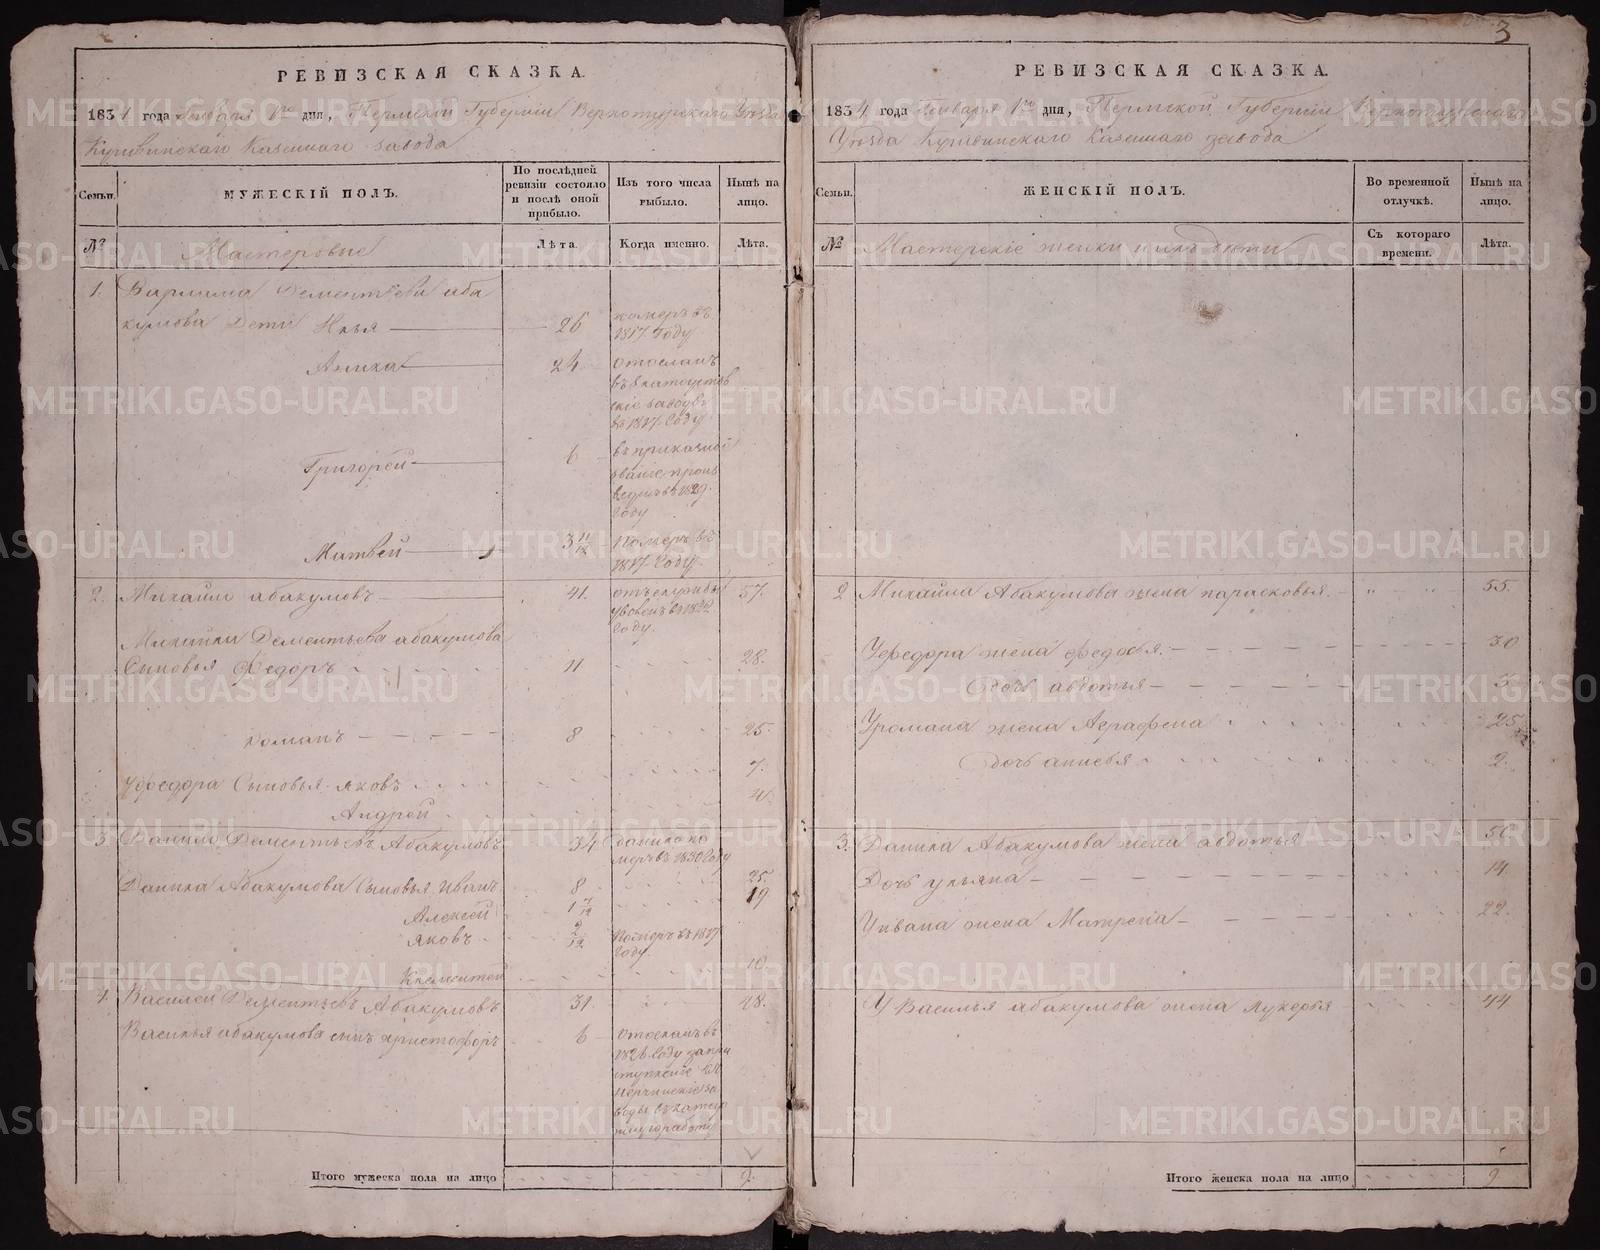 3
РЕВИЗСКАЯ СКАЗКА.
1834 года Января 1го дня, Пермской Губернiи Верхотурскаго Уѣзда
Кушвинскаго Казеннаго завода
Семьи.
МУЖЕСКIЙ ПОЛЪ.
По послѣдней ревизiи состояло и послѣ оной прибыло.
Изъ того числа выбыло.
Нынѣ на лицо.
№
Мастеровые
Лѣта.
Когда именно.
Лѣта.
1. Варлама Дементьева Аба
кумова Дети Илья 26 померъ въ
1817 году
24 отосланъ
въ Златоустов
скiе заводы
въ 1817 году
Григорей 6 въ
званiе произ
веденъ въ 1829
году
Матвей 3 11/12 Померъ въ
1817 году
2. Михайло Абакумовъ 41. 57.
году.
Михайлы Дементьева Абакумова
Сыновья Федоръ 11 28.
Романъ 8 25.
У Федора Сыновья Яковъ 7.
Андрей 4.
3 Данило Дементьевъ Абакумовъ 34 Данило по
меръ въ 1830 году
Данила Абакумова Сыновья Иванъ 8 25.
Алексей 1 7/12 19
Яковъ 2/12 Померъ въ 1817
году.
10.
4. Василей Дементьевъ Абакумовъ 31. 48.
Василья Абакумова сынъ Христофоръ 6 отосланъ въ
1826 году за пре
ступленiе въ
Нерчинскiе за
воды въ катор
жную работу
Итого мужеска пола на лицо 9.
РЕВИЗСКАЯ СКАЗКА.
1834 года Января 1го дня, Пермской Губернiи Верхотурскаго
Уѣзда Кушвинскаго Казеннаго завода
Семьи.
ЖЕНСКIЙ ПОЛЪ.
Во временной отлучкѣ.
Нынѣ на лицо.
№
Мастерскiе женки и ихъ дети
Съ котораго времени.
Лѣта.
2 Михайла Абакумова жена парасковья. 55.
У Федора жена федосья. 30
дочь авдотья
У романа жена Аграфена 25
дочь анисья 2.
3. Данила Абакумова жена авдотья 50.
Дочь ульяна 14
У Ивана жена Матрена 22.
У Василья абакумова жена лукерья 44
Итого женска пола на лицо 9
METRIKI.GASO-URAL.RU